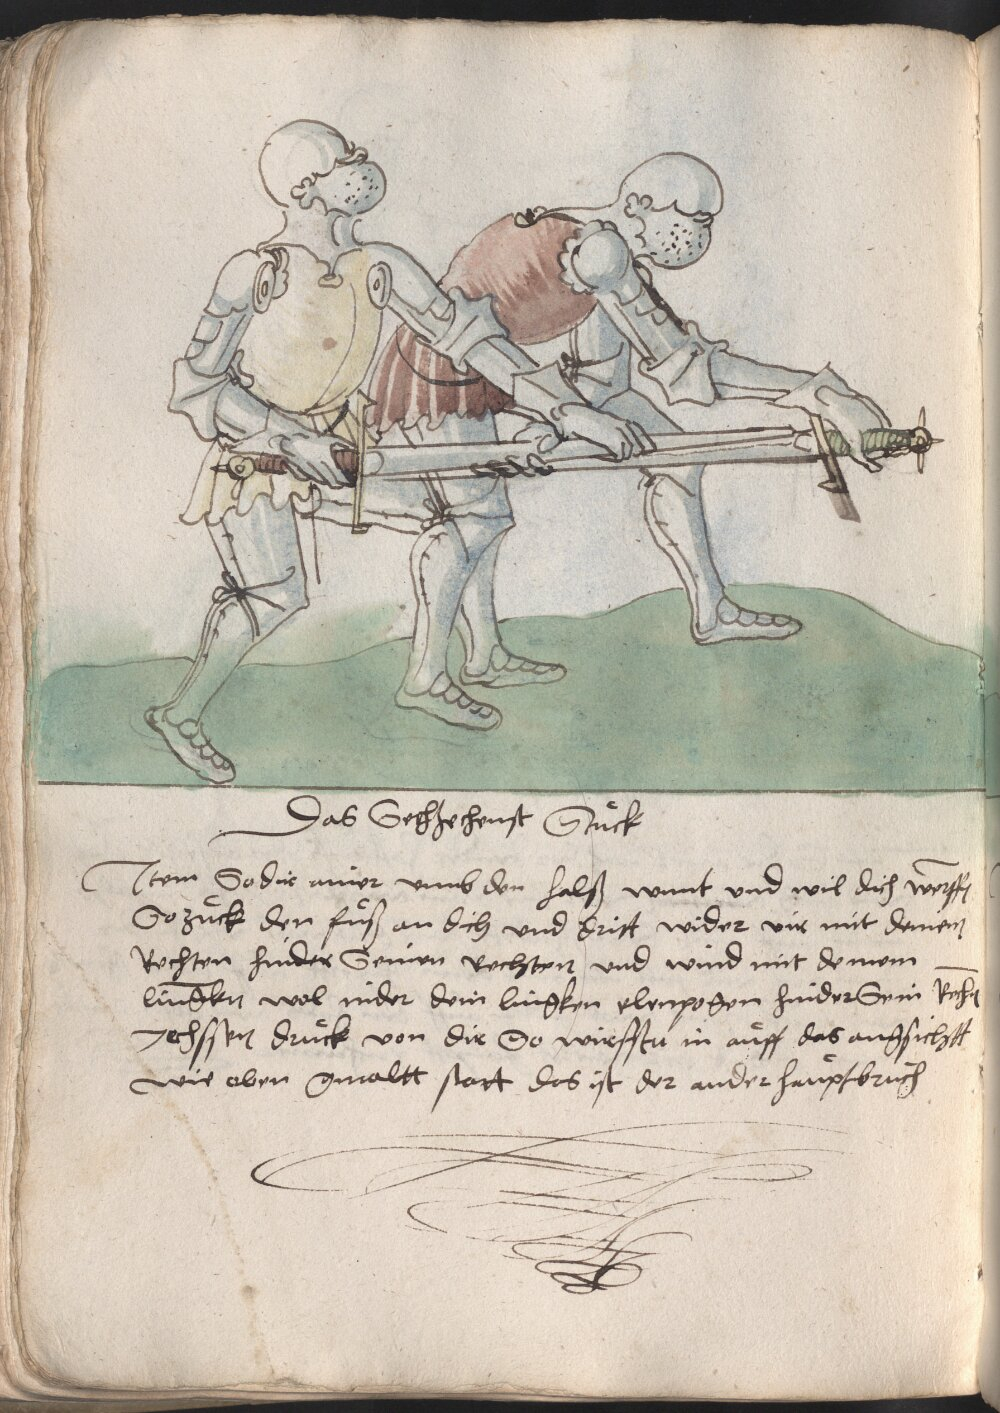 Das Sechzechenst Stuck
Item So dir ainer umb den halß wint und wil dich werffen
So zuck den fuß an dich und dritt wider vür mit deinem
Rechten hinder Seinen rechten und wind mit deinem
lingken wol under dein lingken elenpogen hinder Sein Rechten
Iechssen druck von dir So würffstu in auff das angsichtt
wie oben gmaltt statt das ist der ander hauptbruch